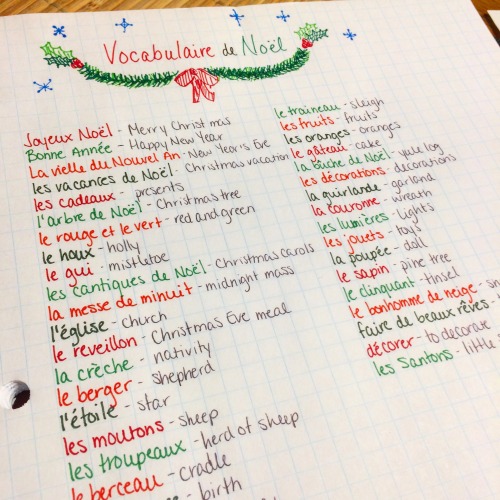 Vocabulaire de Noël
Joyeux Noël - Merry Christmas
Bonne Année - Happy New Year
La vielle du Nouvel An - New Year's Eve
les vacances de Noël - Christmas vacation
les cadeaux - presents
l'arbre de Noël - Christmas tree
le rouge et le vert - red and green
le houx - holly
le gui - mistletoe
les cantiques de Noël - Christmas carols
la messe de minuit - midnight mass
l'église - church
le reveillon - Christmas Eve meal
la crèche - nativity
le berger - shepherd
l'étoile - star
les moutons - sheep
les troupeaux - herd of sheep
le berceau - cradle
- birth
le traineau - sleigh
les fruits - fruits
les oranges - oranges
le gâteau - cake
la bûche de Noël - yule log
les décorations - decorations
la guirlande - garland
la couronne - wreath
les lumières - lights
les jouets - toys
la poupée - doll
le sapin - pine tree
le clinquant - tinsel
le bonhomme de neige -
faire de beaux rêves -
décorer - to decorate
les Santons - little